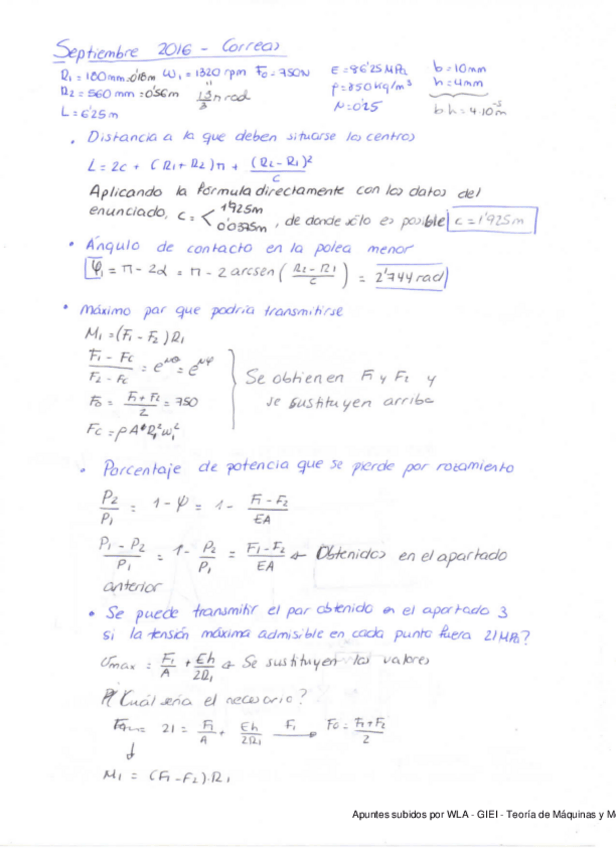 Septiembre 2016 - Correas
R1 = 180mm = 0'18m ω1 = 1320 rpm F0 = 750N E = 86'25 MPa b = 10mm
R2 = 560 mm = 0'56m ρ = 850 kg/m³ h = 4mm
L = 6'25m μ = 0'25 bh = 4·10⁻⁵m
• Distancia a la que deben situarse los centros
L = 2c + (R1 + R2)π + (R2 - R1)²/c
Aplicando la fórmula directamente con los datos del
enunciado, c = < 1'925m 0'0375m, de donde sólo es posible c = 1'925m
• Ángulo de contacto en la polea menor
φ1 = π - 2α = π - 2 arcsen((R2 - R1)/c) = 2'744 rad
• Máximo par que podría transmitirse
M1 = (F1 - F2)R1
(F1 - Fc)/(F2 - Fc) = e^μθ = e^μφ
Se obtienen F1 y F2 y
F0 = (F1 + F2)/2 = 750
se sustituyen arriba
Fc = ρA·R1²ω1²
• Porcentaje de potencia que se pierde por rozamiento
P2/P1 = 1 - ψ = 1 - (F1 - F2)/EA
(P1 - P2)/P1 = 1 - P2/P1 = (F1 - F2)/EA ← Obtenidos en el apartado
anterior
• Se puede transmitir el par obtenido en el apartado 3
si la tensión máxima admisible en cada punto fuera 21 MPa?
σmax = F1/A + Eh/2R1 ← Se sustituyen los valores
¿Cuál sería el necesario?
21 = F1/A + Eh/2R1 F1→ F0 = (F1 + F2)/2
↓
M1 = (F1 - F2)·R1
Apuntes subidos por WLA - GIEI - Teoría de Máquinas y M